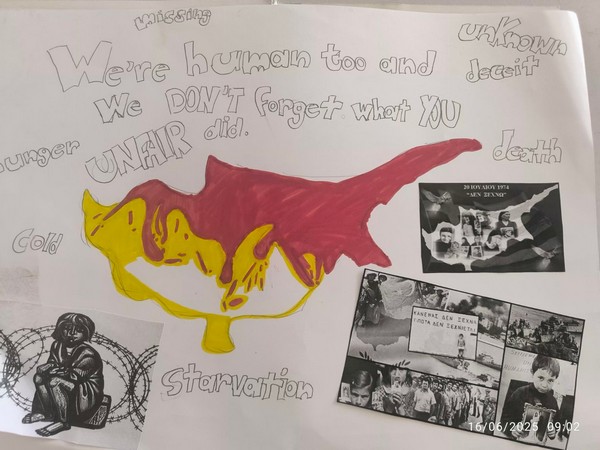 missing
unknown
We're human too and
deceit
We DON'T forget what YOU
did.
unger
UNFAIR
death
20 ΙΟΥΛΙΟΥ 1974
"ΔΕΝ ΞΕΧΝΩ"
Cold
ΚΑΝΕΝΑΣ ΔΕΝ ΞΕΧΝΑ
ΤΙΠΟΤΑ ΔΕΝ ΞΕΧΝΙΕΤΑΙ
Starvation
16/06/2025 09:02